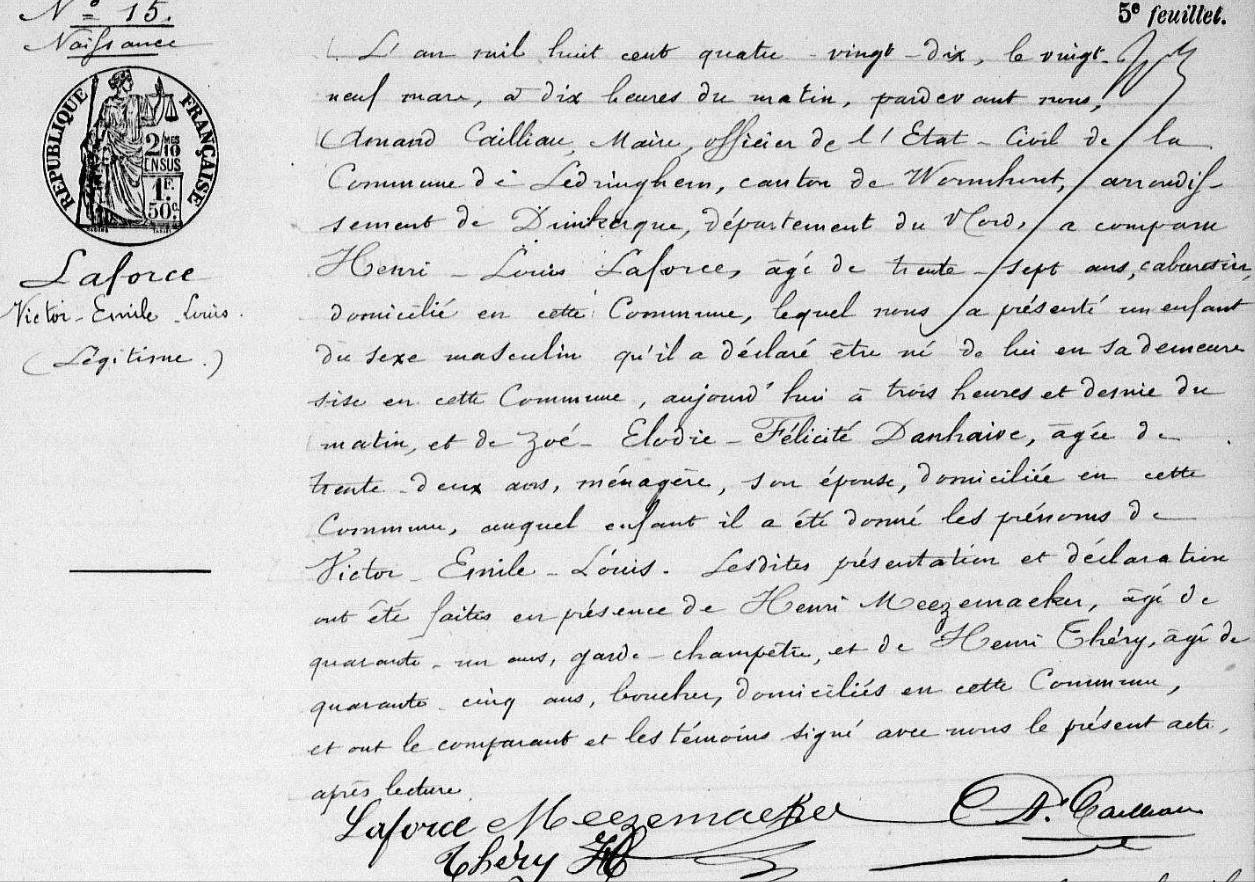 N° 15.
Naissance
5e feuillet.
RÉPUBLIQUE FRANÇAISE
2/10 MES
EN SUS
1 F.
50 c.
Laforce
Victor-Emile-Louis.
(Légitime.)
L'an mil huit cent quatre-vingt-dix, le vingt-
neuf mars, à dix heures du matin, pardevant nous,
Amand Cailliau, Maire, officier de l'Etat-Civil de la
Commune de Ledringhem, canton de Wormhout, arrondis-
sement de Dunkerque, département du Nord, a comparu
Henri-Louis Laforce, âgé de trente-sept ans, cabaretier,
domicilié en cette Commune, lequel nous a présenté un enfant
du sexe masculin qu'il a déclaré être né de lui en sa demeure
sise en cette Commune, aujourd'hui à trois heures et demie du
matin, et de Zoé-Elodie-Félicité Danhaive, âgée de
trente-deux ans, ménagère, son épouse, domiciliée en cette
Commune, auquel enfant il a été donné les prénoms de
Victor-Emile-Louis. Lesdites présentation et déclaration
ont été faites en présence de Henri Meezemaeker, âgé de
quarante-un ans, garde-champêtre, et de Henri Théry, âgé de
quarante-cinq ans, boucher, domiciliés en cette Commune,
et ont le comparant et les témoins signé avec nous le présent acte,
après lecture.
Laforce Meezemaeker A. Cailliau
Théry H